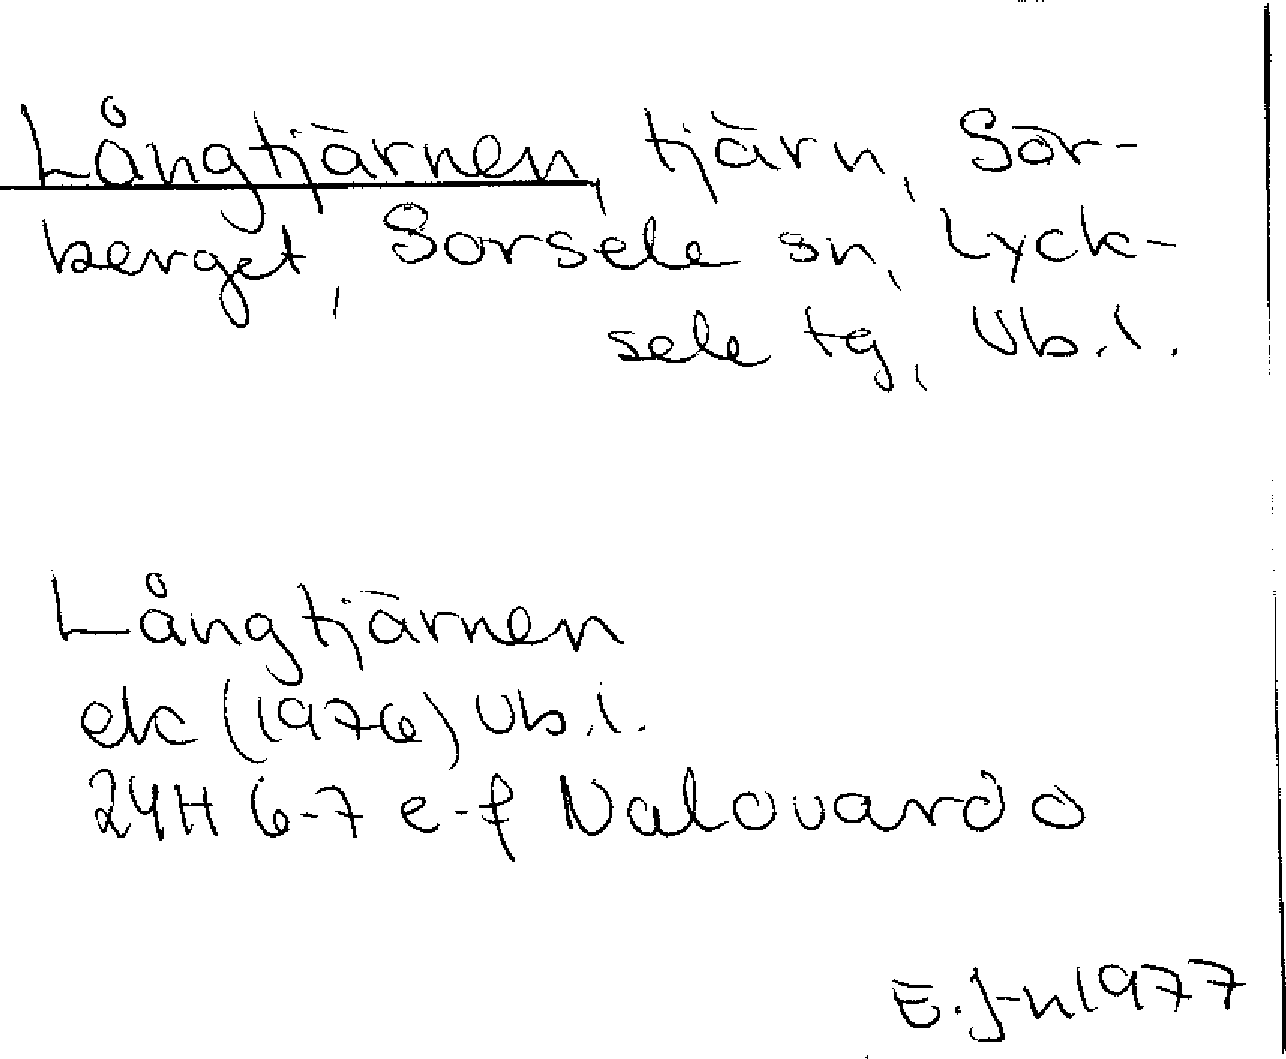 Långtjärnen, tjärn, Sör-
berget, Sorsele sn, Lyck-
sele tg, Vb.l.
Långtjärnen
ek (1976) Vb.l.
24H 6-7 e-f Nalovardo
E. J-n 1977